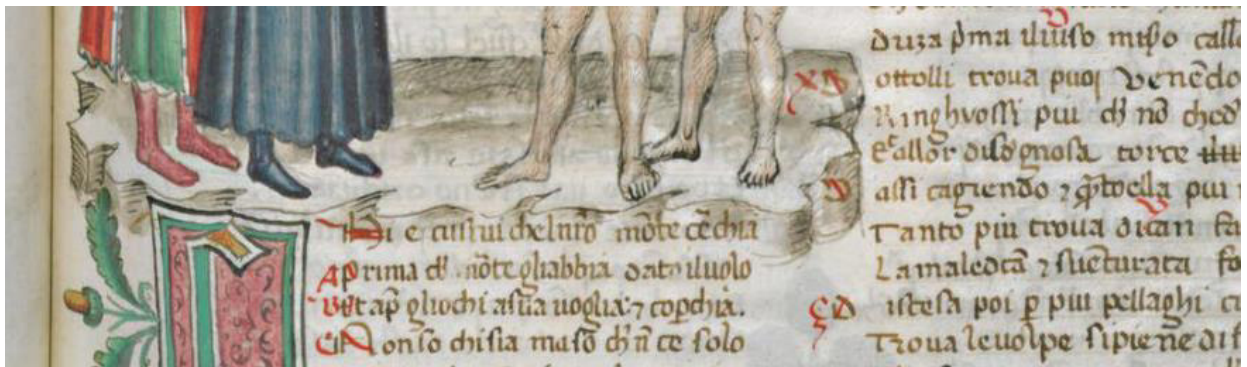 hi e custui chelnr̄o mōte cēchia
Aprima cħ mōte gliabbia dato iluolo
Vetap̄ gliochi asua uoglia: ⁊ cop̄chia.
Non so chi sia ma so cħ n̄ ce solo
duza p̄ma iluiso mis̄o calle
ottolli trova puoi venēdo
Ringhvossi piu cħ nō
Eallor disdegnosa torce
assi cagiendo ⁊ piu
Tanto piu trova dican fa
La maledcā ⁊ suēturata fo
istesa poi p̱ piu pellaghi cu
Trova leuolpe sipiene dif